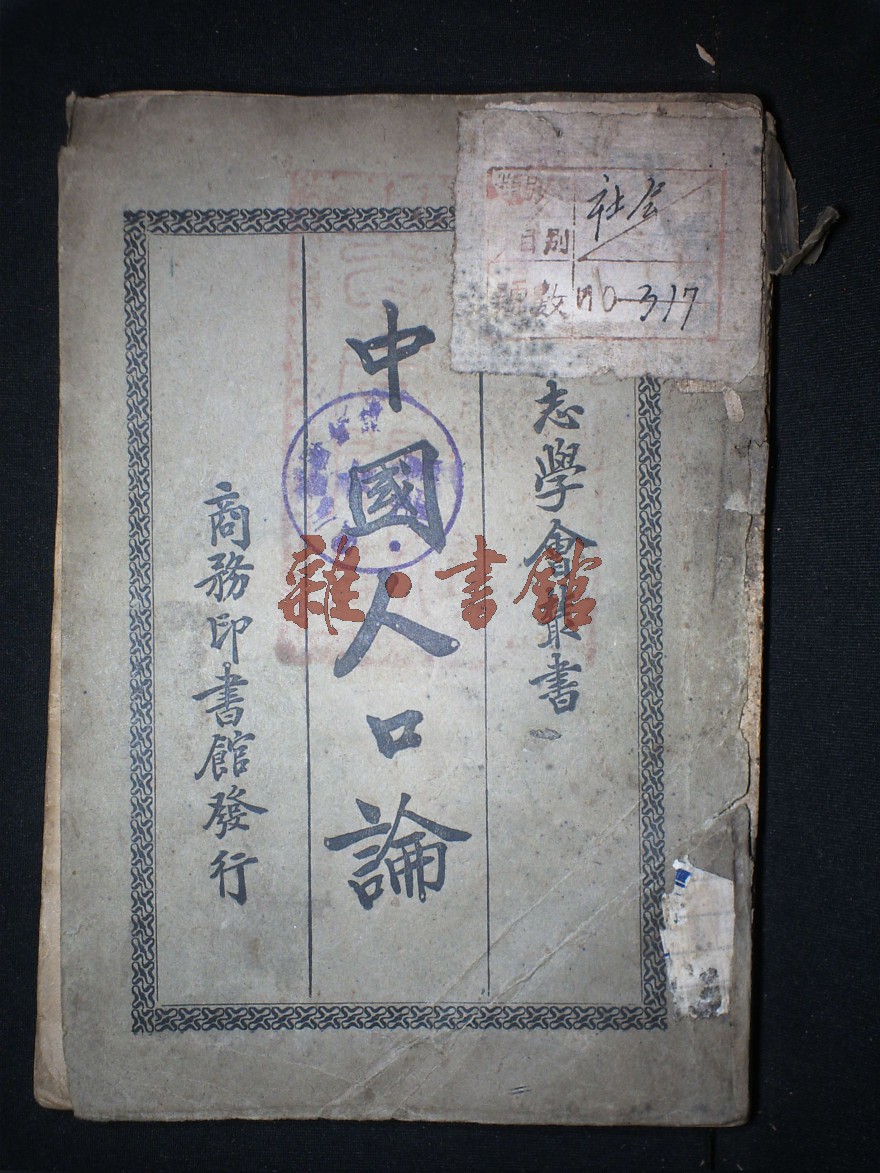 志學會叢書
中國人口論
商務印書館發行
類別 社会
目別
號數 NO-317
雜·書館